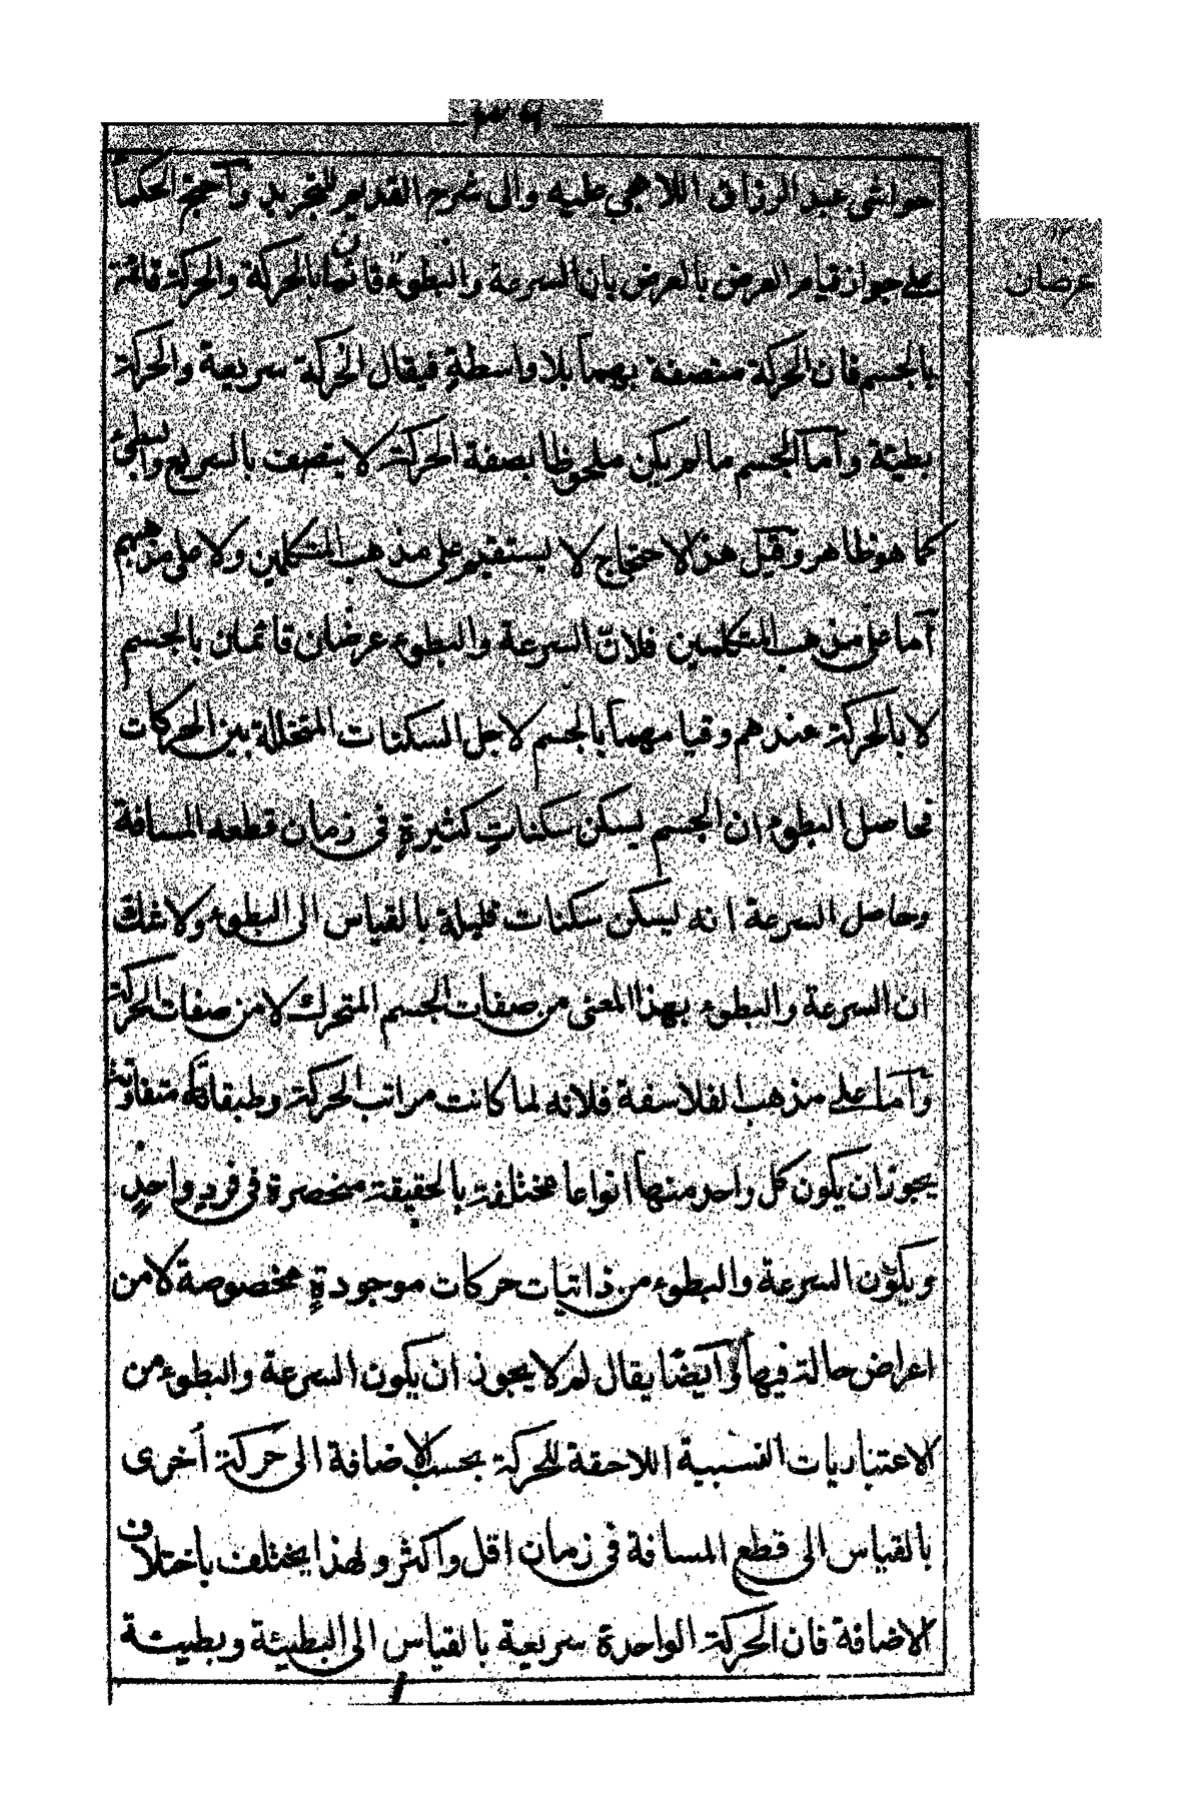 حواشی عبد الرزاق اللاهجي عليه والى شرح القديم للتجريد واحتج الحكماء
على جواز قيام العرض بالعرض بان السرعة والبطوء قائمتان بالحركة والحركة قائمة
عرضان
بالجسم فان الحركة متصفة بهما بلا واسطةٍ فيقال الحركة سريعة والحركة
بطيئة وأما الجسم مالم يكن ملحوظا بصفة الحركة لا يتصف بالسريع والبطئ
كما هو ظاهر وقيل هذ الاحتجاج لا يستقيم على مذهب المتكلمين ولا على مذهبهم
أما على مذهب المتكلمين فلان السرعة والبطوء عرضان قائمان بالجسم
لا بالحركة عندهم وقيامهما بالجسم لاجل السكنات المتخللة بين الحركات
فحاصل البطوء ان الجسم يسكن سكناتٍ كثيرةٍ في زمان قطعه المسافة
وحاصل السرعة انه يسكن سكنات قليلة بالقياس الى البطوء ولا شك
ان السرعة والبطوء بهذا المعنى من صفات الجسم المتحرك لا من صفات الحركة
وأما على مذهب الفلاسفة فلانه لما كانت مراتب الحركة وطبقاته متفاوتة
يجوز ان يكون كل واحد منها انواعا مختلفة بالحقيقة منحصرة في فردٍ واحدٍ
ويكون السرعة والبطوء من ذاتيات حركات موجودةٍ مخصوصة لا من
اعراض حالة فيها وأيضًا يقال لم لا يجوز ان يكون السرعة والبطوء من
الاعتباريات النسبية اللاحقة للحركة بحسب الاضافة الى حَركة أخرى
بالقياس الى قطع المسافة في زمان اقل واكثر ولهذا يختلف باختلاف
الاضافة فان الحركة الواحدة سريعة بالقياس الى البطيئة وبطيئة